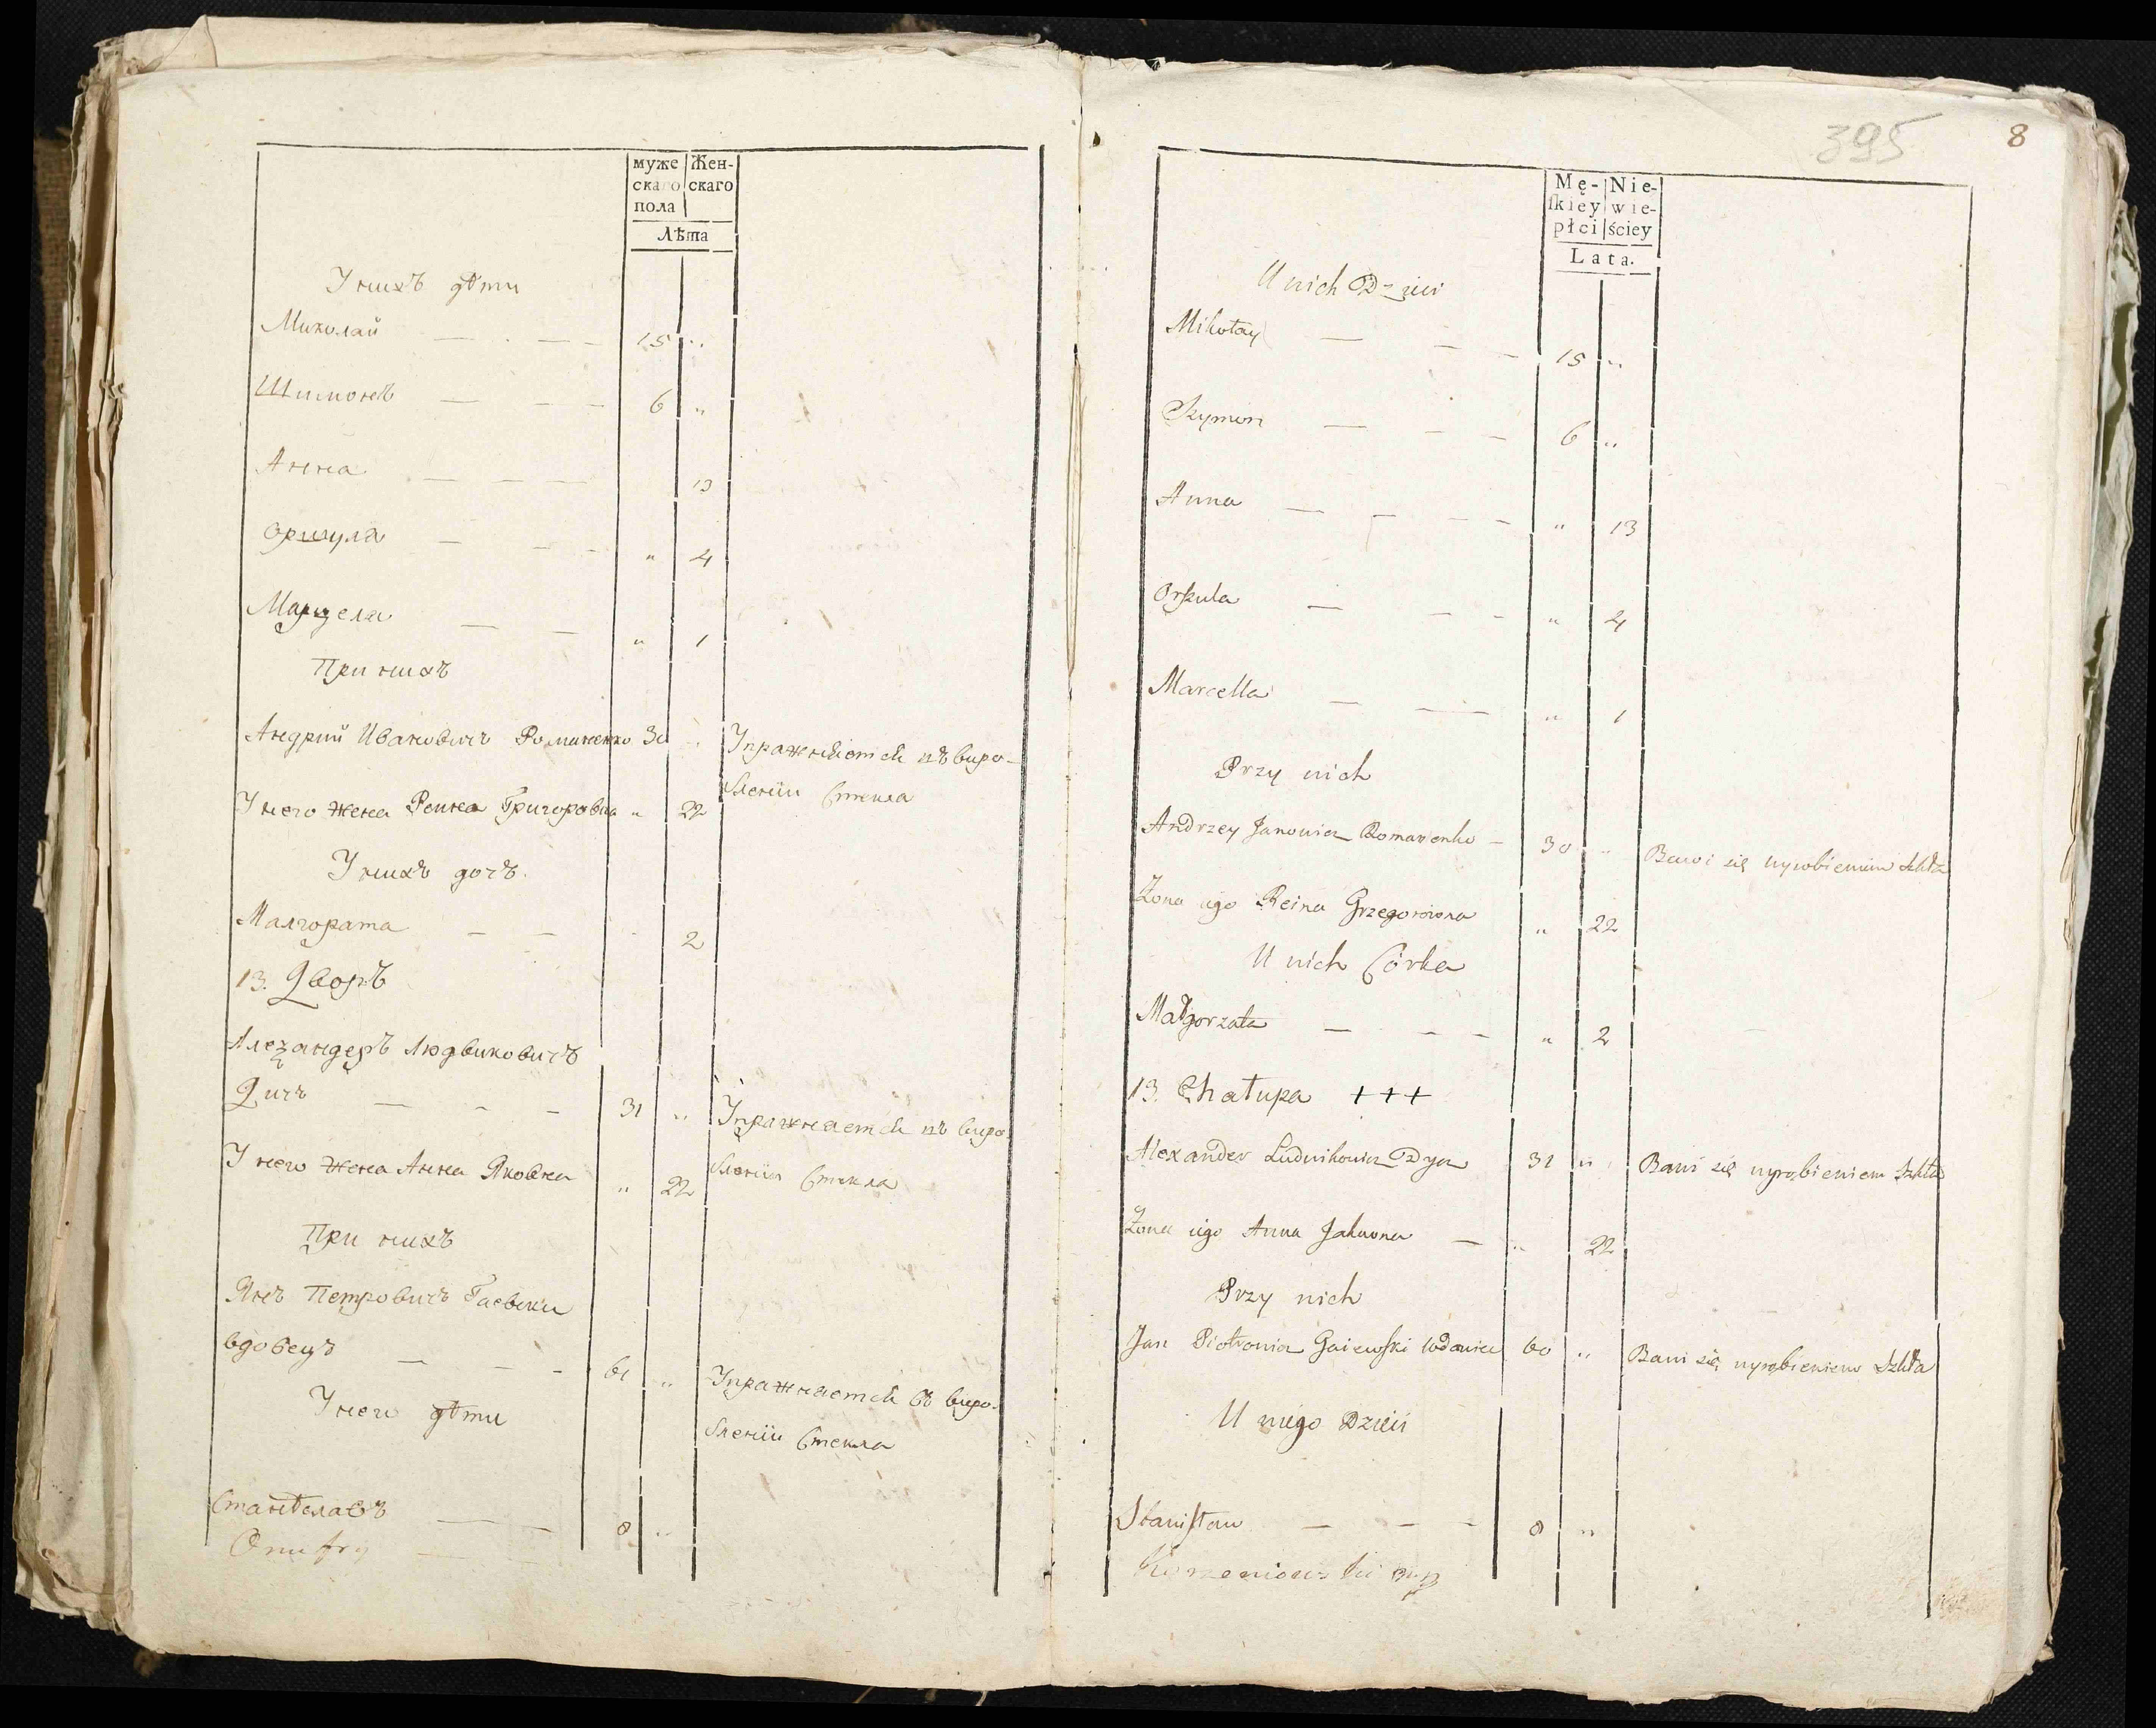 муже Жен-
скаго скаго
пола
Лѣта
У нихъ дѣти
Миколай 15 "
Шимонъ 6 "
Анна 13
Оршула " 4
Марцела " 1
При нихъ
Андрий Ивановичъ Романенко 30 " Упражняется въ виро-
бленіи Стекла
У него жена Реина Григоровна " 22
У нихъ дочь
Малгората 2
13. Дворъ
Алезандеръ Людвиковичъ
Дичъ 31 " Упражняется въ виро-
бленіи Стекла
У него жена Анна Яковна " 22
При нихъ
Янъ Петровичъ Гаевски
вдовецъ 61 " Упражняется въ виро-
бленіи Стекла
У него дѣти
Станѣславъ 8 "
Onufry
395 8
Mę- Nie-
ſkiey wie-
płci ściey
Lata.
U nich Dzieci
Mikołay 15 "
Szymon 6 "
Anna " 13
Orszula " 4
Marcella " 1
Przy nich
Andrzey Janowicz Romanenko 30 " Bawi się wyrobieniem szkła
Żona iego Reina Grzegorowna " 22
U nich Córka
Małgorzata " 2
13. Chałupa +++
Alexander Ludwikowicz Dycz 31 " Bawi się wyrobieniem Szkła
Żona iego Anna Jakowna " 22
Przy nich
Jan Piotrowicz Gaiewski wdowiec 60 " Bawi się wyrobieniem Szkła
U niego Dzieci
Stanisław 8 "
Korzeniowski